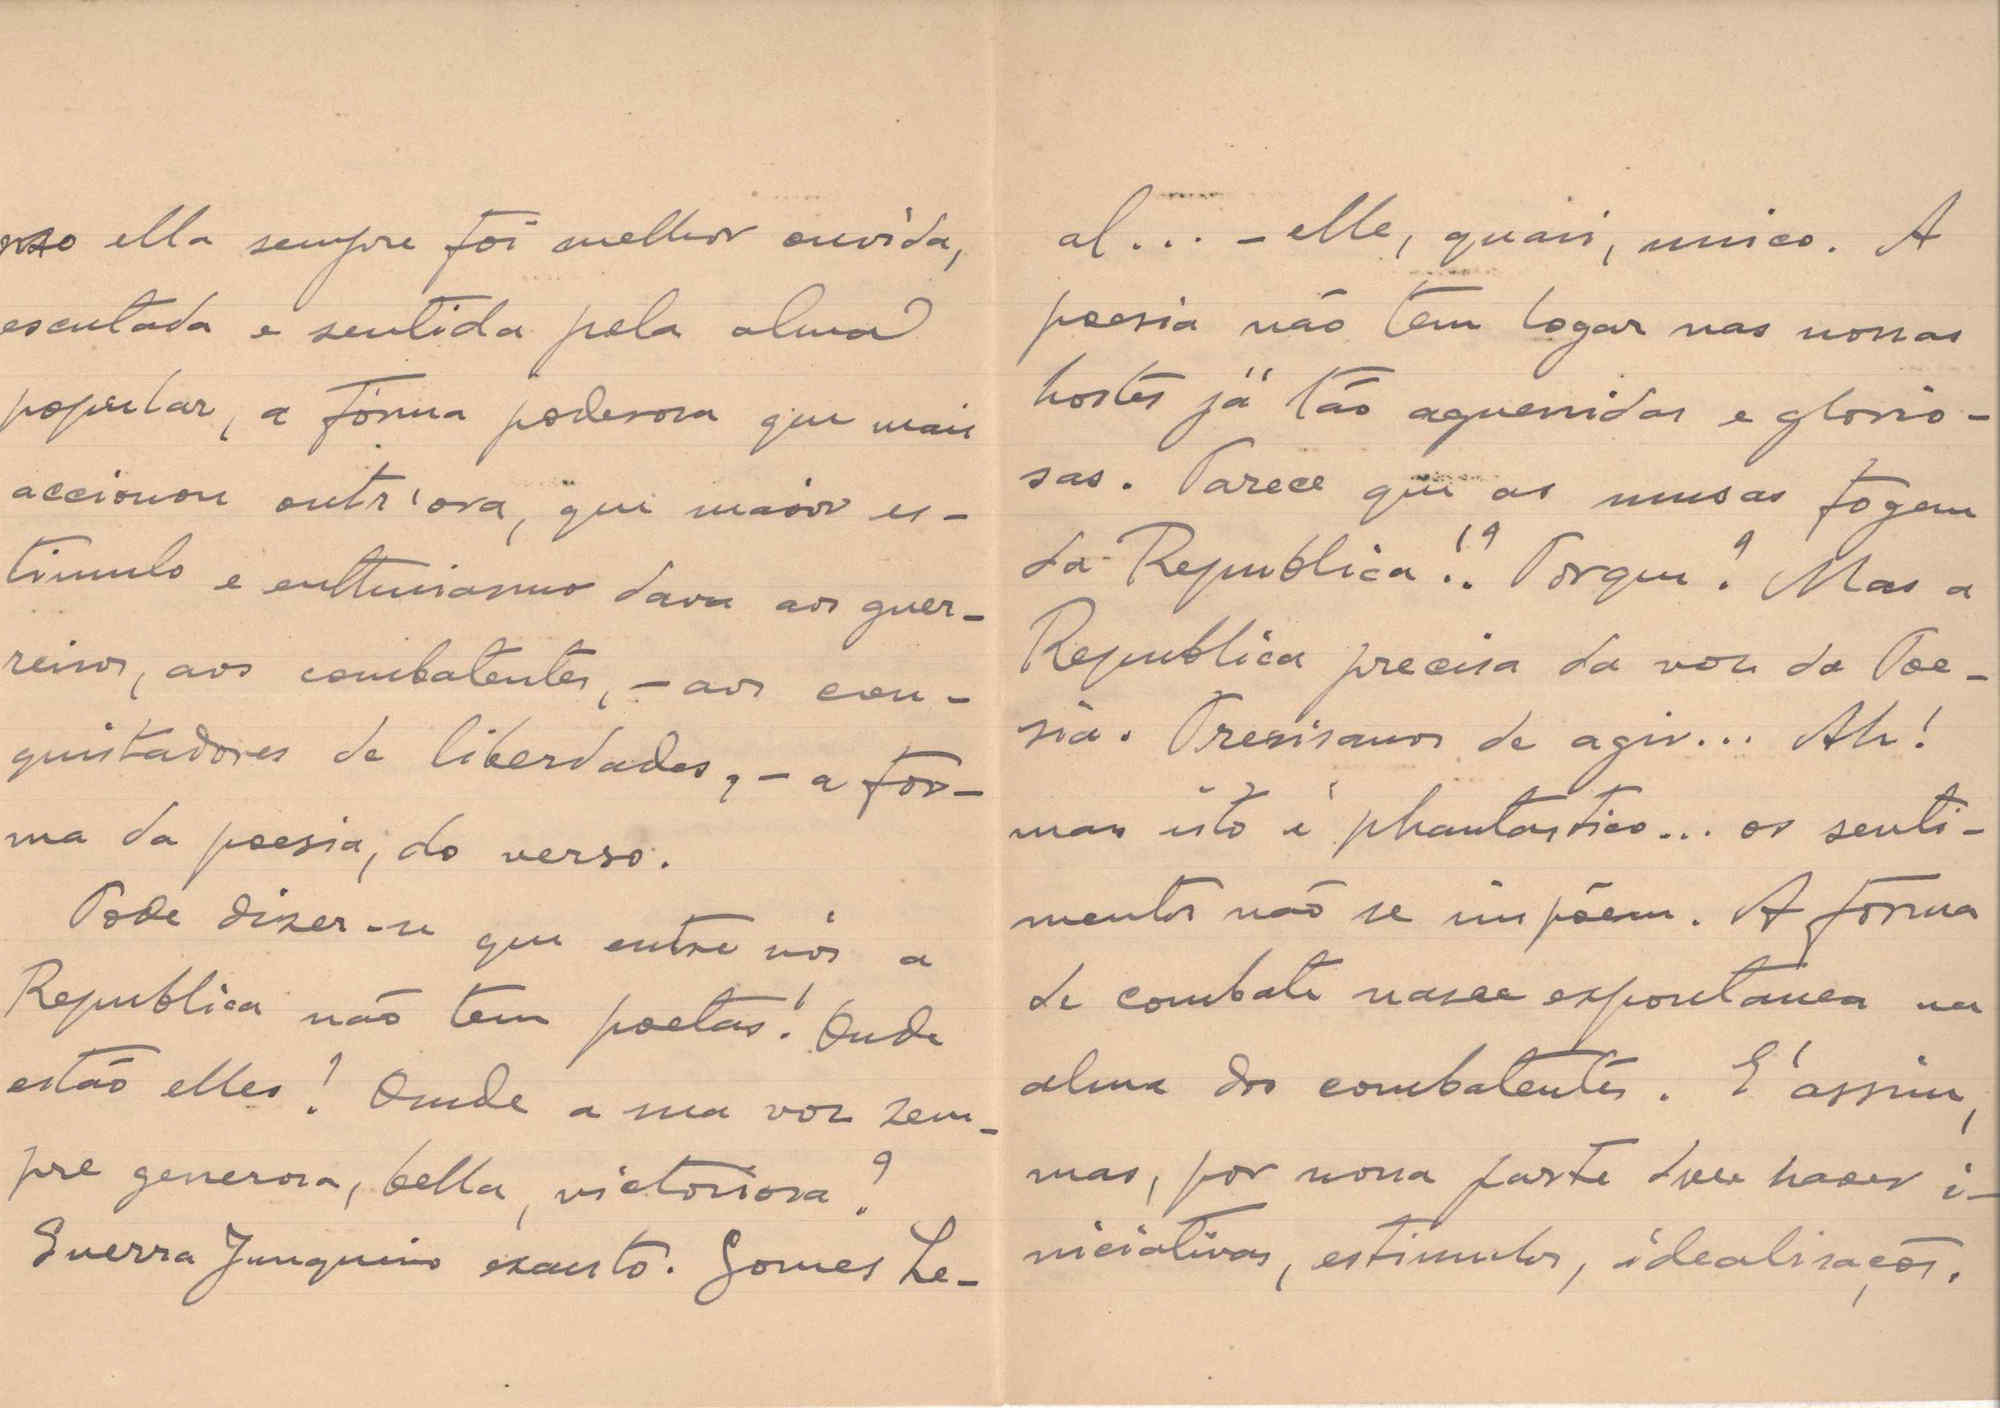 ella sempre foi melhor ouvida,
escutada e sentida pela alma
popular, a fórma poderosa que mais
accionou outr'ora, que maior es-
timulo e enthusiasmo dava aos guer-
reiros, aos combatentes, - aos con-
quistadores de liberdades, - a fór-
ma da poesia, do verso.
Pode dizer-se que entre nós a
Republica não tem poetas! Onde
estão elles? Onde a sua voz sem-
pre generosa, bella, victoriosa?
Guerra Junqueiro exausto. Gomes Le-
al... - elle, quasi, unico. A
poesia não tem logar nas nossas
hostes já tão aguerridas e glorio-
sas. Parece que as musas fogem
da Republica!? Porque? Mas a
Republica precisa da voz da Poe-
sia. Precisamos de agir... Ah!
mas isto é phantastico... os senti-
mentos não se impõem. A fórma
de combate nasce espontanea na
alma dos combatentes. E' assim,
mas, por nossa parte deve haver i-
niciativas, estimulos, idealisações.